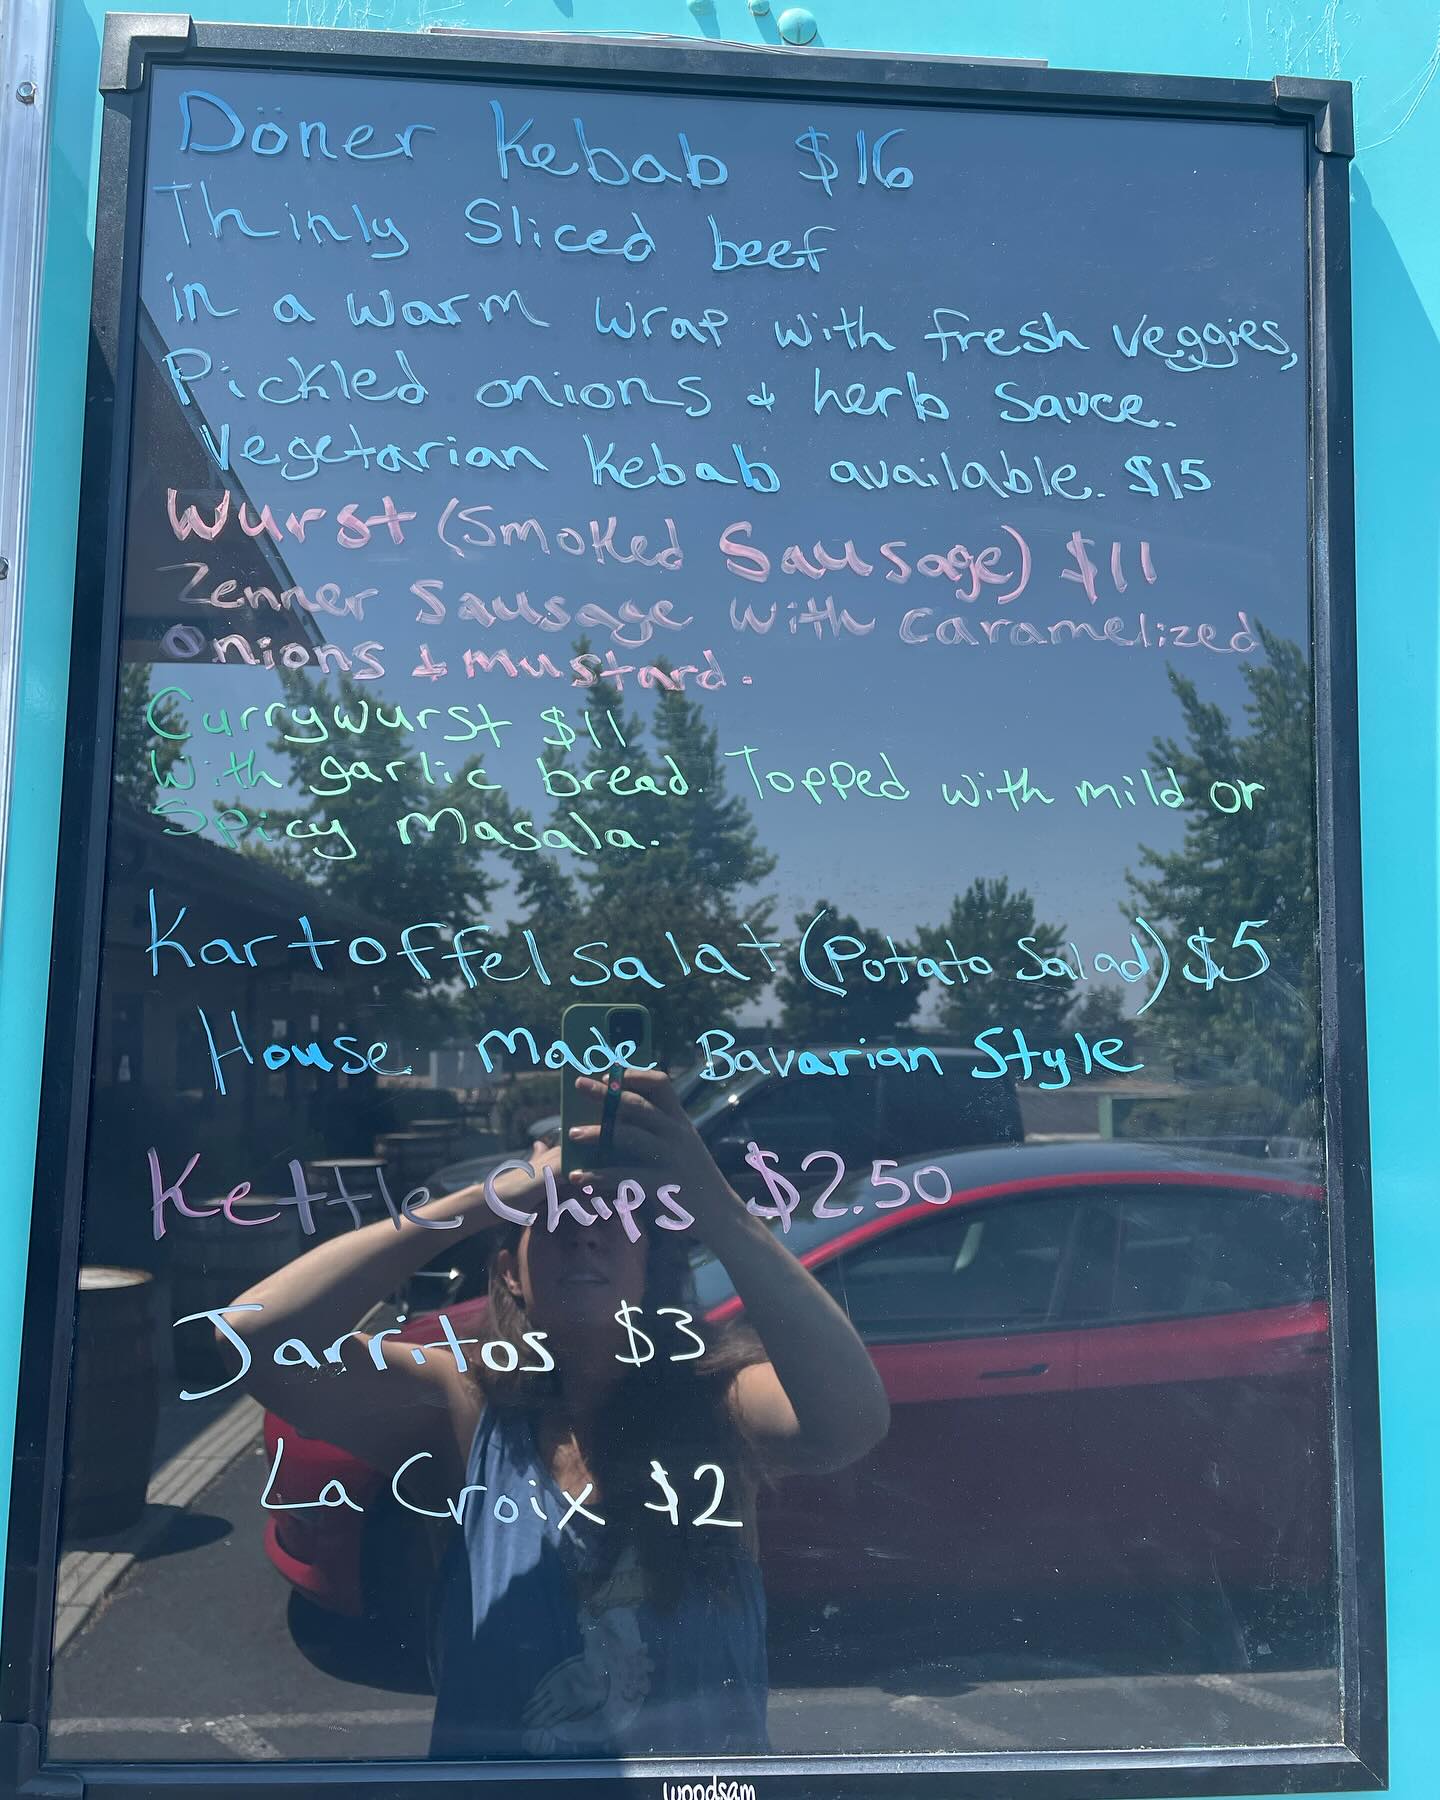 Döner Kebab $16
Thinly Sliced beef
in a warm wrap with fresh veggies,
Pickled onions & herb Sauce.
Vegetarian Kebab available. $15
Wurst (Smoked Sausage) $11
Zenner Sausage with Caramelized
onions & mustard.
Currywurst $11
With garlic bread. Topped with mild or
Spicy Masala.
Kartoffelsalat (Potato Salad) $5
House Made Bavarian Style
Kettle Chips $2.50
Jarritos $3
La Croix $2
woodsam